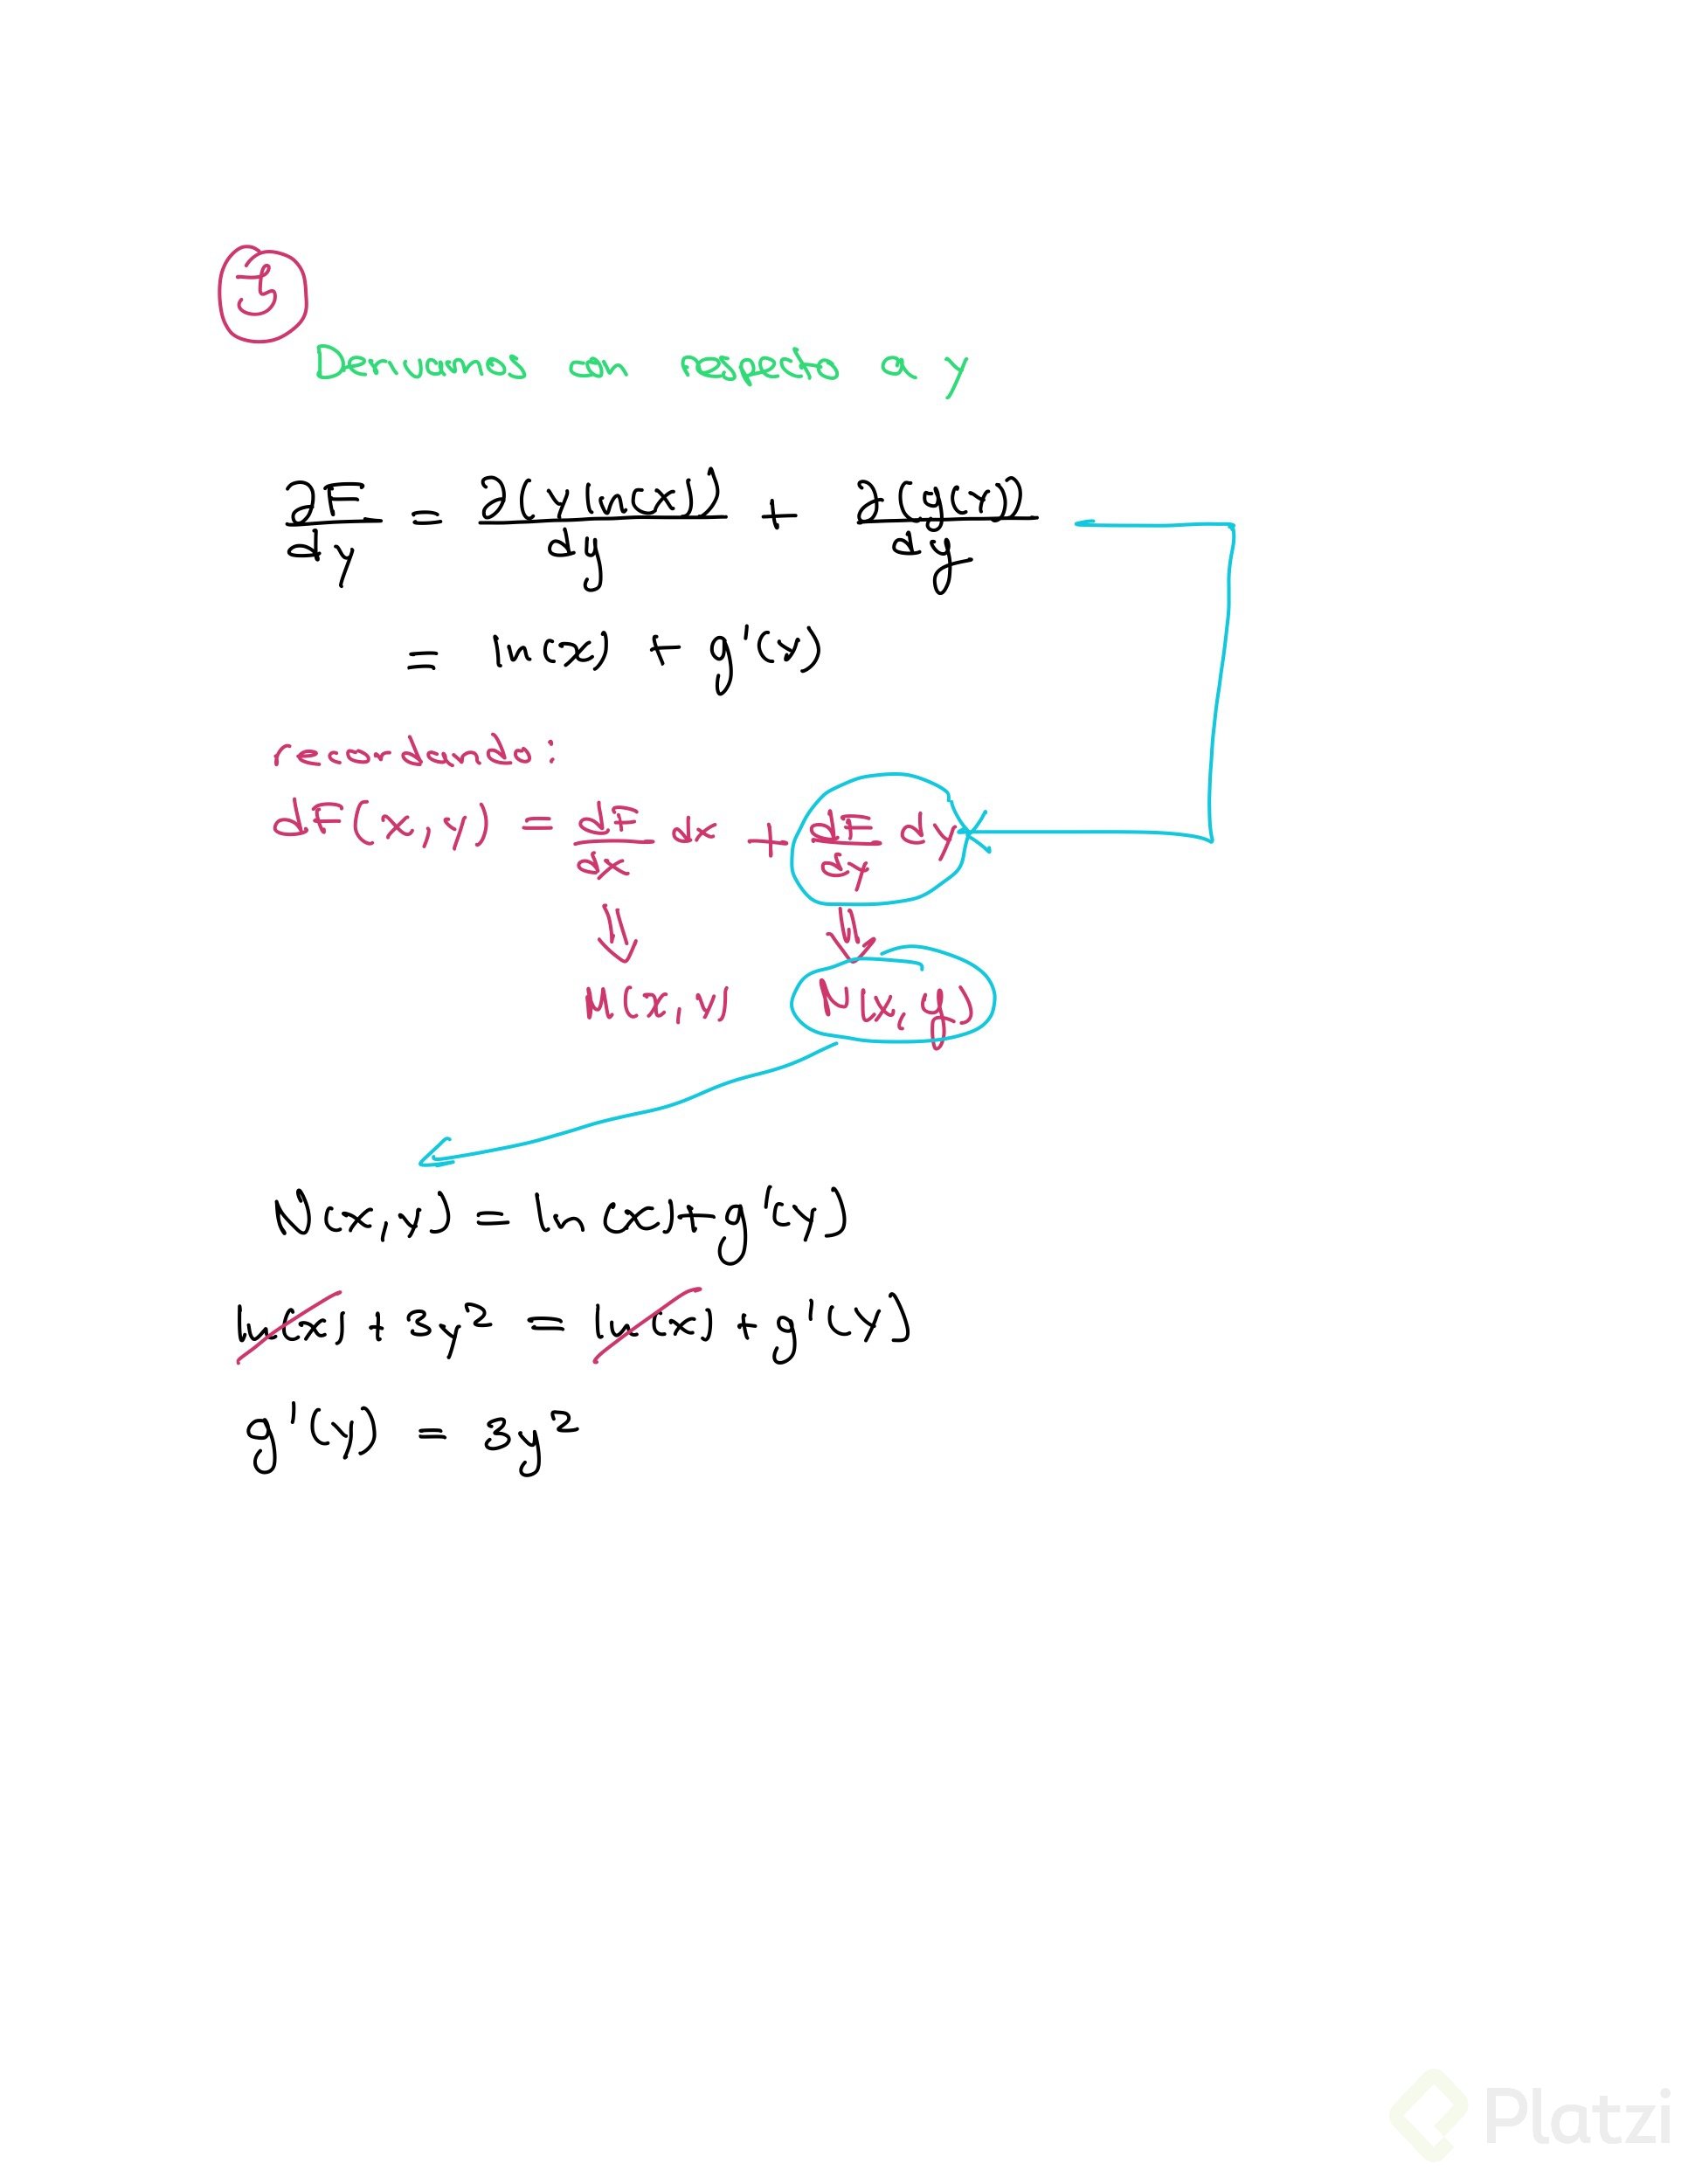 3
Derivamos con respecto a y
∂F/dy = ∂(y ln(x))/dy + ∂(g(y))/dy
= ln(x) + g'(y)
recordando:
dF(x,y) = dF/dx dx + dF/dy dy
⇓ ⇓
M(x,y) N(x,y)
N(x,y) = ln(x)+g'(y)
ln(x) + 3y² = ln(x) + g'(y)
g'(y) = 3y²
Platzi